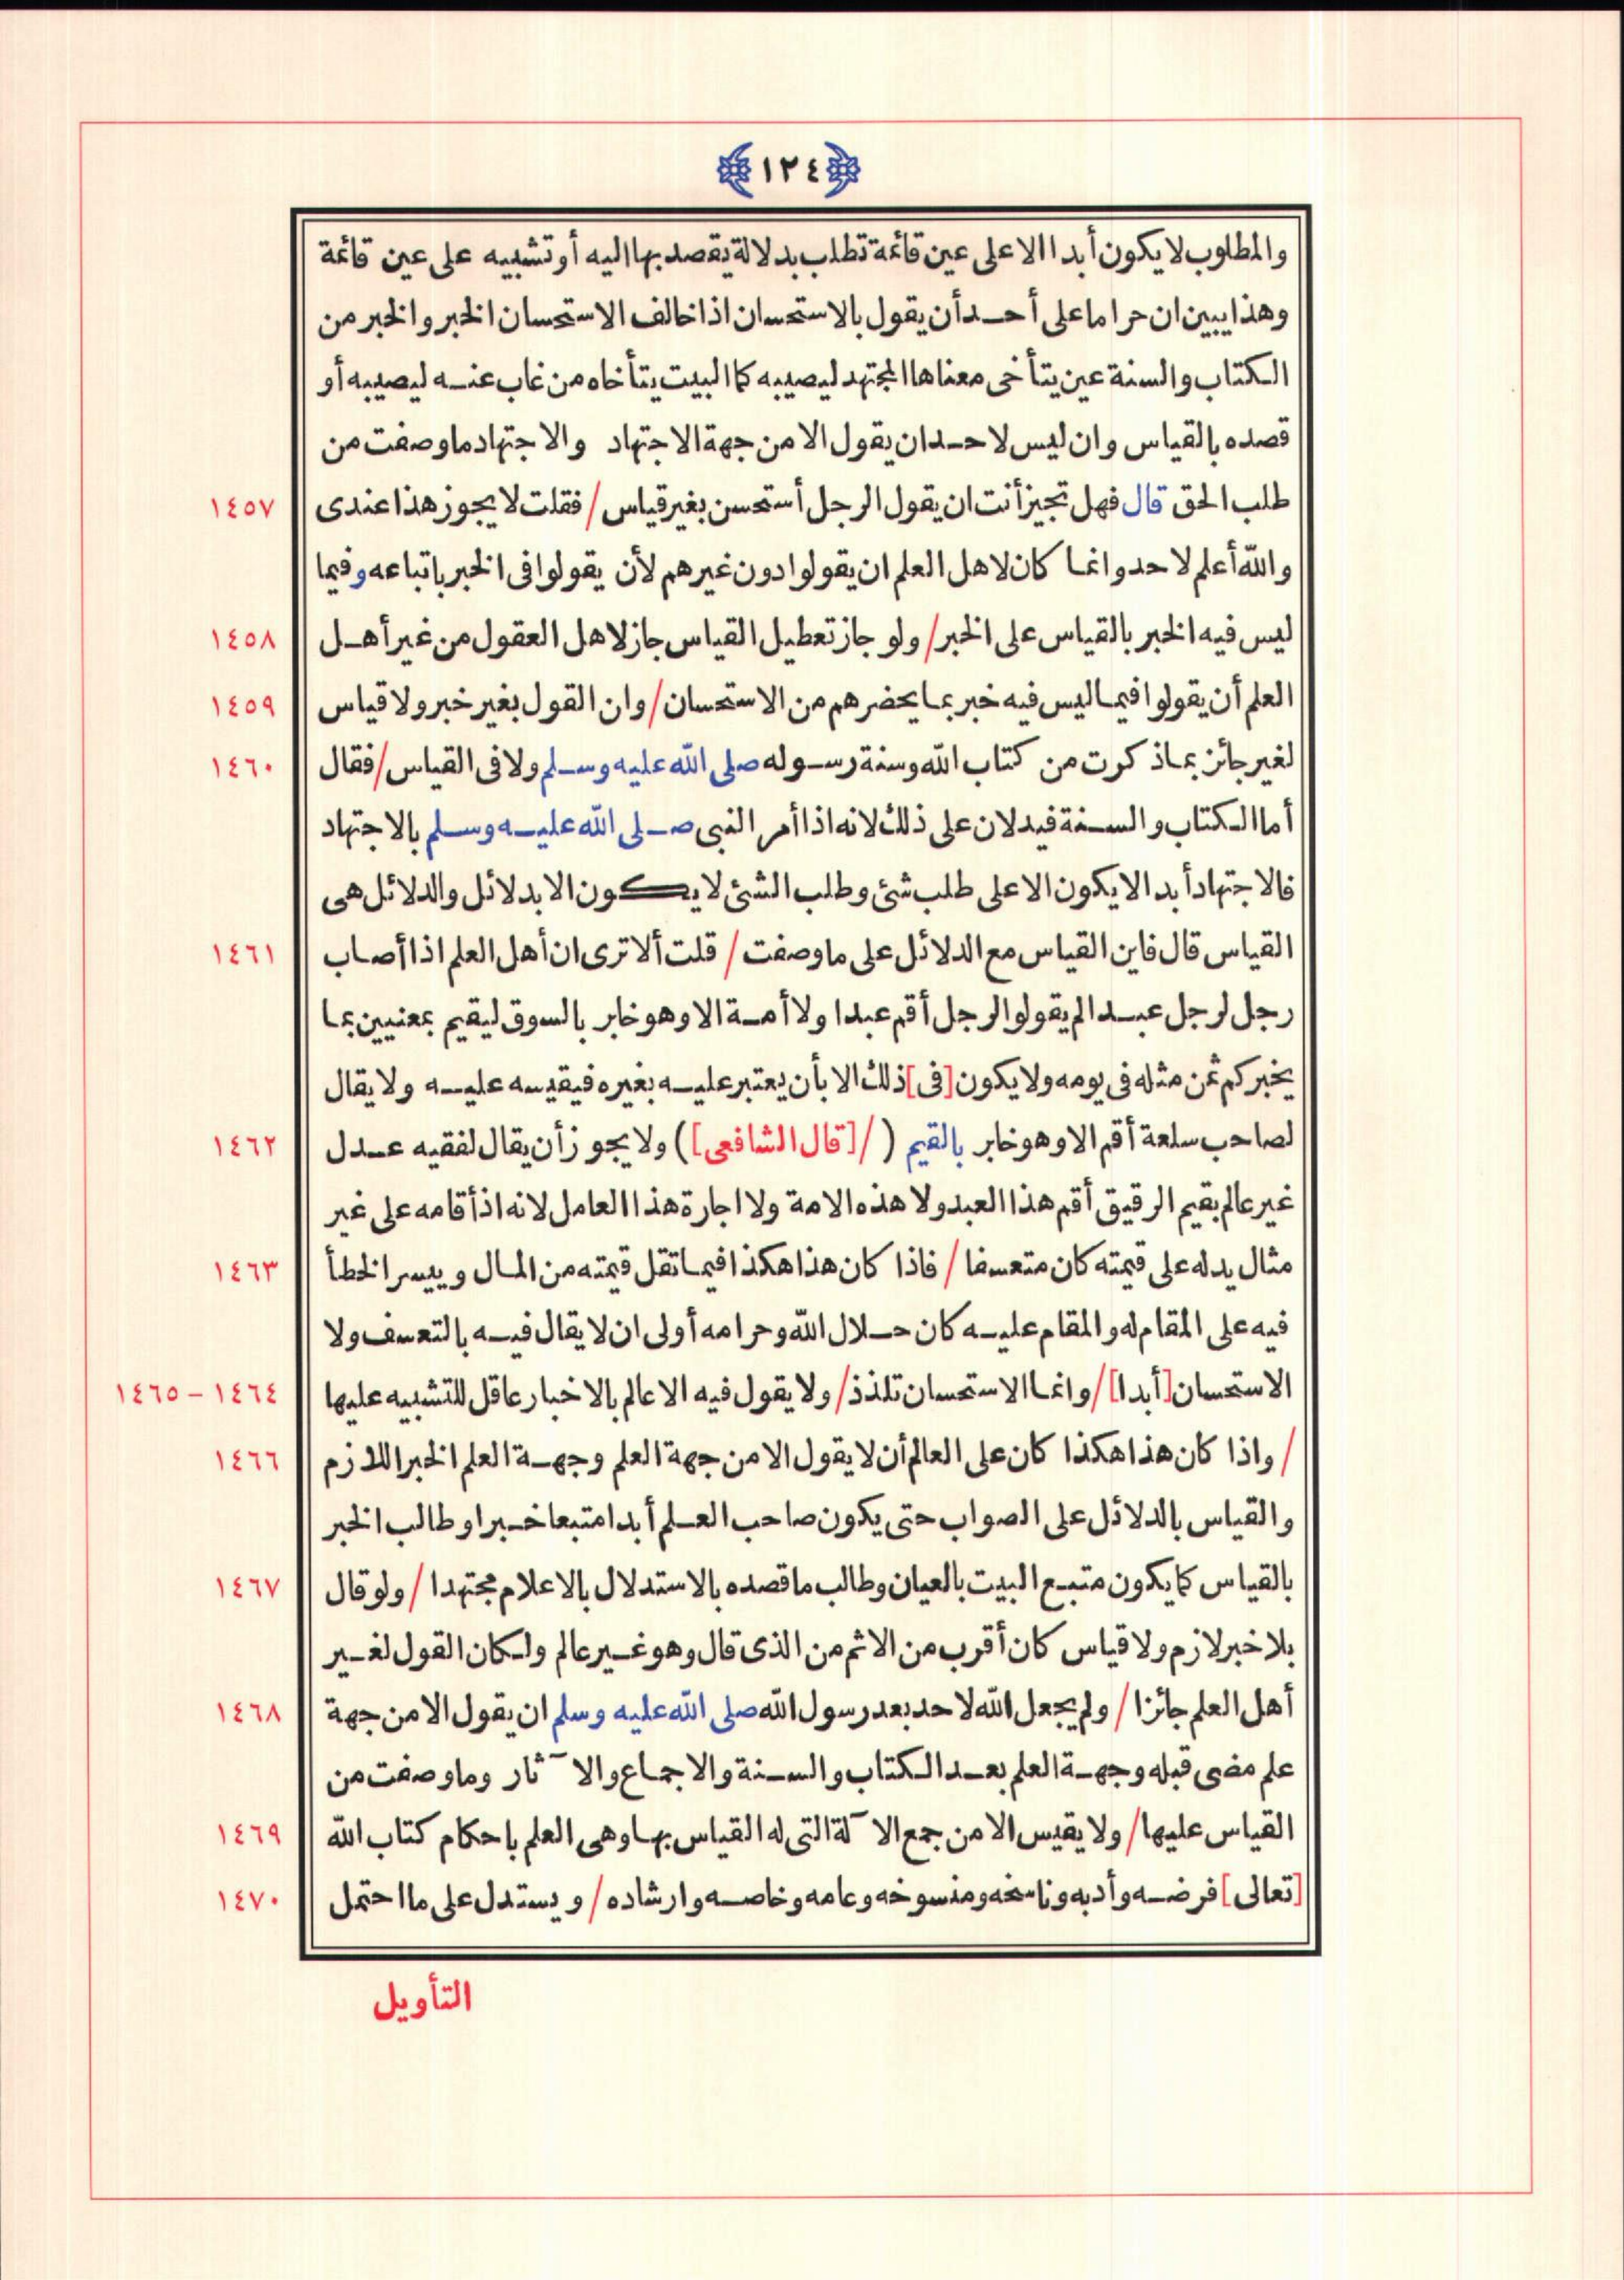 ١٢٤
والمطلوب لا يكون أبدا الا على عين قائمة تطلب بدلالة يقصد بها اليه أو تشبيه على عين قائمة
وهذا يبين ان حراما على أحد أن يقول بالاستحسان اذا خالف الاستحسان الخبر والخبر من
الكتاب والسنة عين يتأخى معناها المجتهد ليصيبه كما البيت يتأخاه من غاب عنه ليصيبه أو
قصده بالقياس وان ليس لاحد ان يقول الا من جهة الاجتهاد والاجتهاد ما وصفت من
طلب الحق قال فهل تجيز أنت ان يقول الرجل أستحسن بغير قياس / فقلت لا يجوز هذا عندى ١٤٥٧
والله أعلم لاحد وانما كان لاهل العلم ان يقولوا دون غيرهم لأن يقولوا فى الخبر باتباعه وفيما
ليس فيه الخبر بالقياس على الخبر / ولو جاز تعطيل القياس جاز لاهل العقول من غير أهل ١٤٥٨
العلم أن يقولوا فيما ليس فيه خبر بما يحضرهم من الاستحسان / وان القول بغير خبر ولا قياس ١٤٥٩
لغير جائز بما ذكرت من كتاب الله وسنة رسوله صلى الله عليه وسلم ولا فى القياس / فقال ١٤٦٠
أما الكتاب والسنة فيدلان على ذلك لانه اذا أمر النبى صلى الله عليه وسلم بالاجتهاد
فالاجتهاد أبدا لا يكون الا على طلب شئ وطلب الشئ لا يكون الا بدلائل والدلائل هى
القياس قال فاين القياس مع الدلائل على ما وصفت / قلت ألا ترى ان أهل العلم اذا أصاب ١٤٦١
رجل لرجل عبدا لم يقولوا لرجل أقم عبدا ولا أمة الا وهو خابر بالسوق ليقيم بمعنيين بما
يخبر كم ثمن مثله فى يومه ولا يكون [فى] ذلك الا بأن يعتبر عليه بغيره فيقيسه عليه ولا يقال
لصاحب سلعة أقم الا وهو خابر بالقيم ( / [قال الشافعى]) ولا يجوز أن يقال لفقيه عدل ١٤٦٢
غير عالم بقيم الرقيق أقم هذا العبد ولا هذه الامة ولا اجارة هذا العامل لانه اذ أقامه على غير
مثال يدله على قيمته كان متعسفا / فاذا كان هذا هكذا فيما تقل قيمته من المال وييسر الخطأ ١٤٦٣
فيه على المقام له والمقام عليه كان حلال الله وحرامه أولى ان لا يقال فيه بالتعسف ولا
الاستحسان [أبدا] / وانما الاستحسان تلذذ / ولا يقول فيه الا عالم بالاخبار عاقل للتشبيه عليها ١٤٦٤ - ١٤٦٥
/ واذا كان هذا هكذا كان على العالم أن لا يقول الا من جهة العلم وجهة العلم الخبر اللازم ١٤٦٦
والقياس بالدلائل على الصواب حتى يكون صاحب العلم أبدا متبعا خبرا وطالب الخبر
بالقياس كما يكون متبع البيت بالعيان وطالب ما قصده بالاستدلال بالاعلام مجتهدا / ولو قال ١٤٦٧
بلا خبر لازم ولا قياس كان أقرب من الاثم من الذى قال وهو غير عالم ولكان القول لغير
أهل العلم جائزا / ولم يجعل الله لاحد بعد رسول الله صلى الله عليه وسلم ان يقول الا من جهة ١٤٦٨
علم مضى قبله وجهة العلم بعد الكتاب والسنة والاجماع والآثار وما وصفت من
القياس عليها / ولا يقيس الا من جمع الآلة التى له القياس بها وهى العلم باحكام كتاب الله ١٤٦٩
[تعالى] فرضه وأدبه وناسخه ومنسوخه وعامه وخاصه وارشاده / ويستدل على ما احتمل ١٤٧٠
التأويل